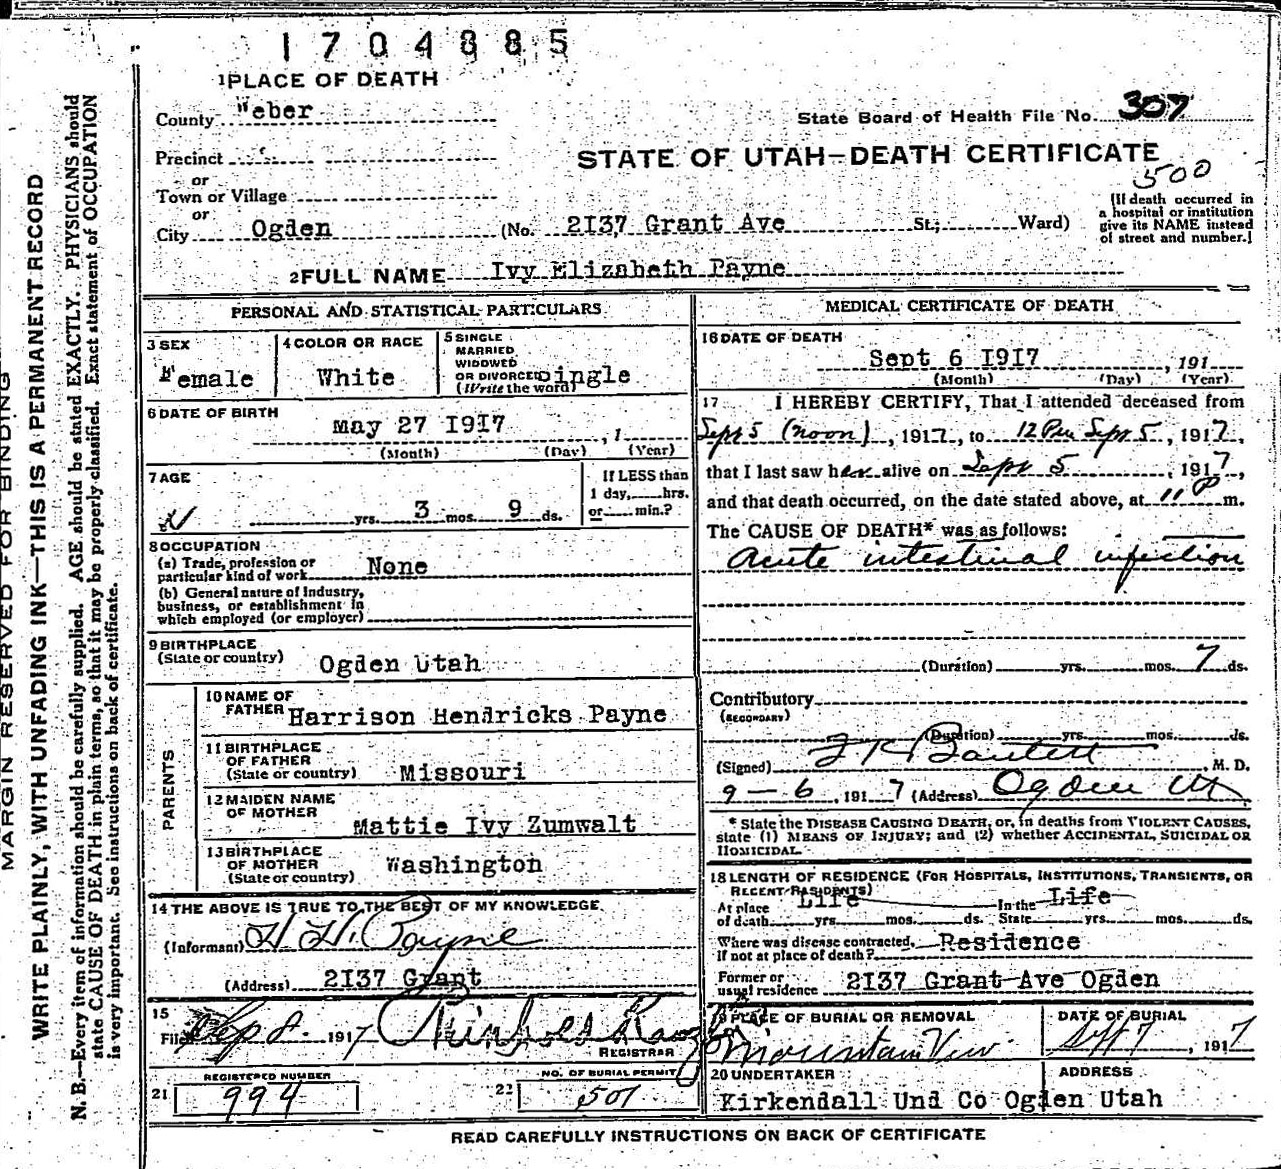 1704885
1 PLACE OF DEATH
County Weber
State Board of Health File No. 307
Precinct
STATE OF UTAH—DEATH CERTIFICATE
or
500
Town or Village
or
City Ogden (No. 2I37 Grant Ave St.; Ward)
[If death occurred in
a hospital or institution
give its NAME instead
of street and number.]
2 FULL NAME Ivy Elizabeth Payne
PERSONAL AND STATISTICAL PARTICULARS
3 SEX
Female
4 COLOR OR RACE
White
5 SINGLE
MARRIED
WIDOWED
OR DIVORCED
(Write the word)
Single
6 DATE OF BIRTH
May 27 I9I7 , 1
(Month) (Day) (Year)
7 AGE
yrs. 3 mos. 9 ds.
If LESS than
1 day, hrs.
or min.?
8 OCCUPATION
(a) Trade, profession or
particular kind of work None
(b) General nature of Industry,
business, or establishment in
which employed (or employer)
9 BIRTHPLACE
(State or country) Ogden Utah
PARENTS
10 NAME OF
FATHER Harrison Hendricks Payne
11 BIRTHPLACE
OF FATHER
(State or country) Missouri
12 MAIDEN NAME
OF MOTHER
Mattie Ivy Zumwalt
13 BIRTHPLACE
OF MOTHER
(State or country) Washington
14 THE ABOVE IS TRUE TO THE BEST OF MY KNOWLEDGE
(Informant) H. H. Payne
(Address) 2I37 Grant
15
Filed Sep 8. 1917
REGISTRAR
REGISTERED NUMBER
21 994
NO. OF BURIAL PERMIT
22 501
MEDICAL CERTIFICATE OF DEATH
16 DATE OF DEATH
Sept 6 I9I7 , 191
(Month) (Day) (Year)
17 I HEREBY CERTIFY, That I attended deceased from
Sept 5 (noon) , 1917, to 12 Pm Sept 5 , 1917,
that I last saw her alive on Sept 5 , 1917,
and that death occurred, on the date stated above, at 11 P m.
The CAUSE OF DEATH* was as follows:
Acute intestinal infection
(Duration) yrs. mos. 7 ds.
Contributory
(SECONDARY)
(Duration) yrs. mos. ds.
(Signed) Bartlett M. D.
9-6 , 1917 (Address) Ogden Ut
* State the DISEASE CAUSING DEATH, or, in deaths from VIOLENT CAUSES,
state (1) MEANS OF INJURY; and (2) whether ACCIDENTAL, SUICIDAL OR
HOMICIDAL.
18 LENGTH OF RESIDENCE (FOR HOSPITALS, INSTITUTIONS, TRANSIENTS, OR
RECENT RESIDENTS)
At place Life In the Life
of death yrs. mos. ds. State yrs. mos. ds.
Where was disease contracted, Residence
If not at place of death?
Former or
usual residence 2I37 Grant Ave Ogden
19 PLACE OF BURIAL OR REMOVAL
Mountain View
DATE OF BURIAL
Sept 7 , 1917
20 UNDERTAKER
ADDRESS
Kirkendall Und Co Ogden Utah
READ CAREFULLY INSTRUCTIONS ON BACK OF CERTIFICATE
MARGIN RESERVED FOR BINDING
WRITE PLAINLY, WITH UNFADING INK—THIS IS A PERMANENT RECORD
N. B.—Every item of information should be carefully supplied. AGE should be stated EXACTLY. PHYSICIANS should
state CAUSE OF DEATH in plain terms, so that it may be properly classified. Exact statement of OCCUPATION
is very important. See instructions on back of certificate.